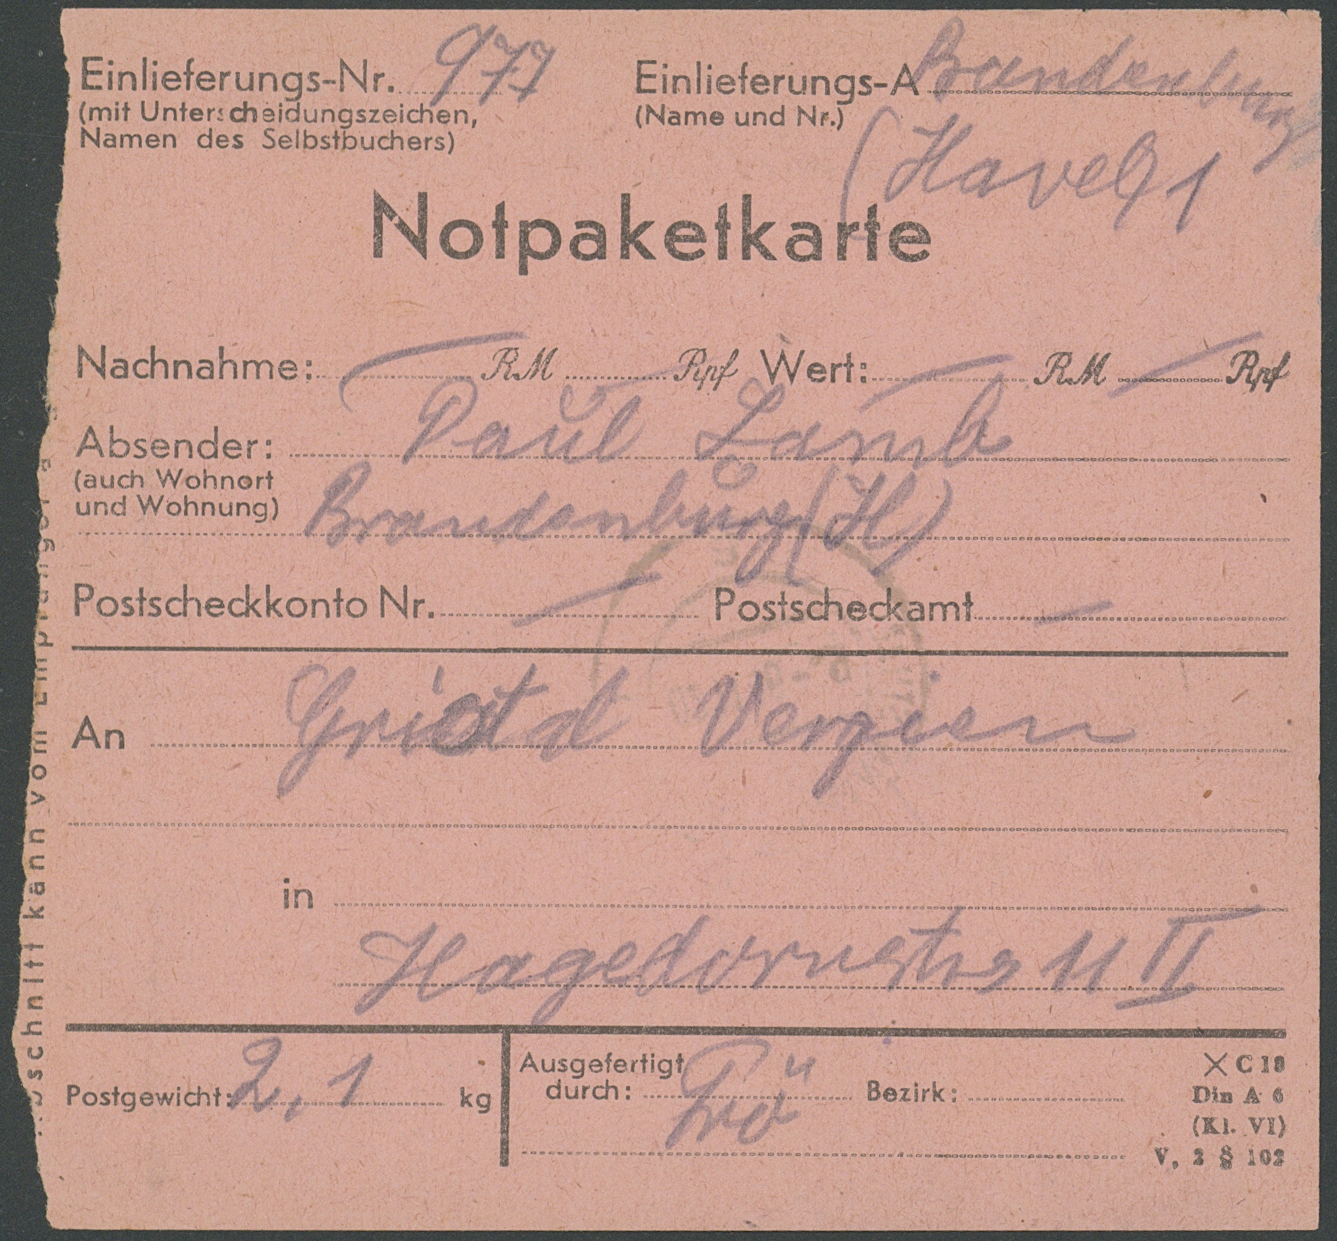 Einlieferungs-Nr. 977
(mit Unterscheidungszeichen,
Namen des Selbstbuchers)
Einlieferungs-A Brandenburg
(Name und Nr.)
(Havel) 1
Notpaketkarte
Nachnahme: RM Rpf Wert: RM Rpf
Absender: Paul Lamb
(auch Wohnort
und Wohnung) Brandenburg (H)
Postscheckkonto Nr. Postscheckamt
An
in
Hagedornstr 11 II
Postgewicht: 2,1 kg
Ausgefertigt
durch: Bezirk:
C 18
Din A 6
(Kl. VI)
V, 2 § 102
schnitt kann vom Empfänger a